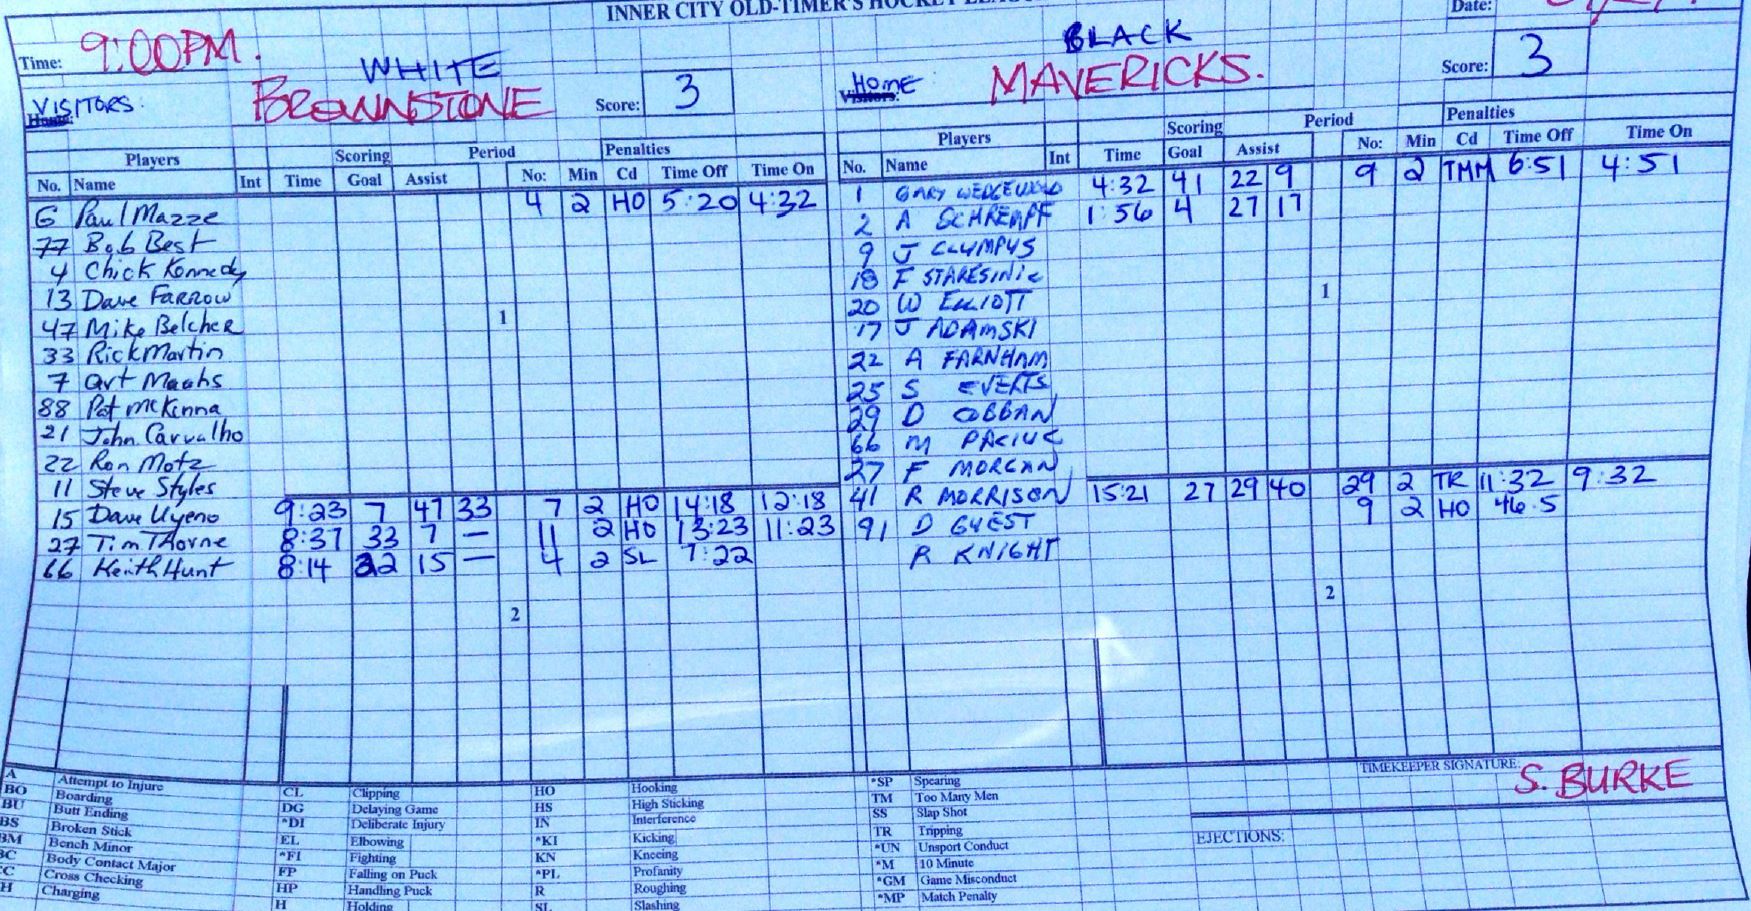 INNER CITY OLD-TIMER'S HOCKEY
Date:
Time: 9:00PM.
WHITE
BLACK
VISITORS: BROWNSTONE Score: 3
Home MAVERICKS. Score: 3
Players Scoring Period Penalties
Players Scoring Period Penalties
No. Name Int Time Goal Assist No: Min Cd Time Off Time On
No. Name Int Time Goal Assist No: Min Cd Time Off Time On
6 Paul Mazze 4 2 HO 5:20 4:32
77 Bob Best
4 Chick Kennedy
13 Dave Farrow
1
47 Mike Belcher
33 Rick Martin
7 Art Maahs
88 Pat McKinna
21 John Carvalho
22 Ron Motz
11 Steve Styles
15 Dave Uyeno 9:23 7 47 33 7 2 HO 14:18 12:18
27 Tim Thorne 8:37 33 7 — 11 2 HO 13:23 11:23
66 Keith Hunt 8:14 22 15 — 4 2 SL 7:22
2
1 GARY WEDGEWOOD 4:32 41 22 9 9 2 TMM 6:51 4:51
2 A SCHREMPF 1:56 4 27 17
9 J CLYMPUS
18 F STARESINIC
20 W ELLIOTT
1
17 J ADAMSKI
22 A FARNHAM
25 S EVERTS
29 D COBBAN
66 M PACIUC
27 F MORGAN
41 R MORRISON 15:21 27 29 40 29 2 TR 11:32 9:32
91 D GUEST 9 2 HO 46.5
R KNIGHT
2
A Attempt to Injure
BO Boarding
BU Butt Ending
BS Broken Stick
BM Bench Minor
BC Body Contact Major
CC Cross Checking
CH Charging
CL Clipping
DG Delaying Game
*DI Deliberate Injury
EL Elbowing
*FI Fighting
FP Falling on Puck
HP Handling Puck
H Holding
HO Hooking
HS High Sticking
IN Interference
*KI Kicking
KN Kneeing
*PL Profanity
R Roughing
SL Slashing
*SP Spearing
TM Too Many Men
SS Slap Shot
TR Tripping
*UN Unsport Conduct
*M 10 Minute
*GM Game Misconduct
*MP Match Penalty
TIMEKEEPER SIGNATURE: S. BURKE
EJECTIONS: